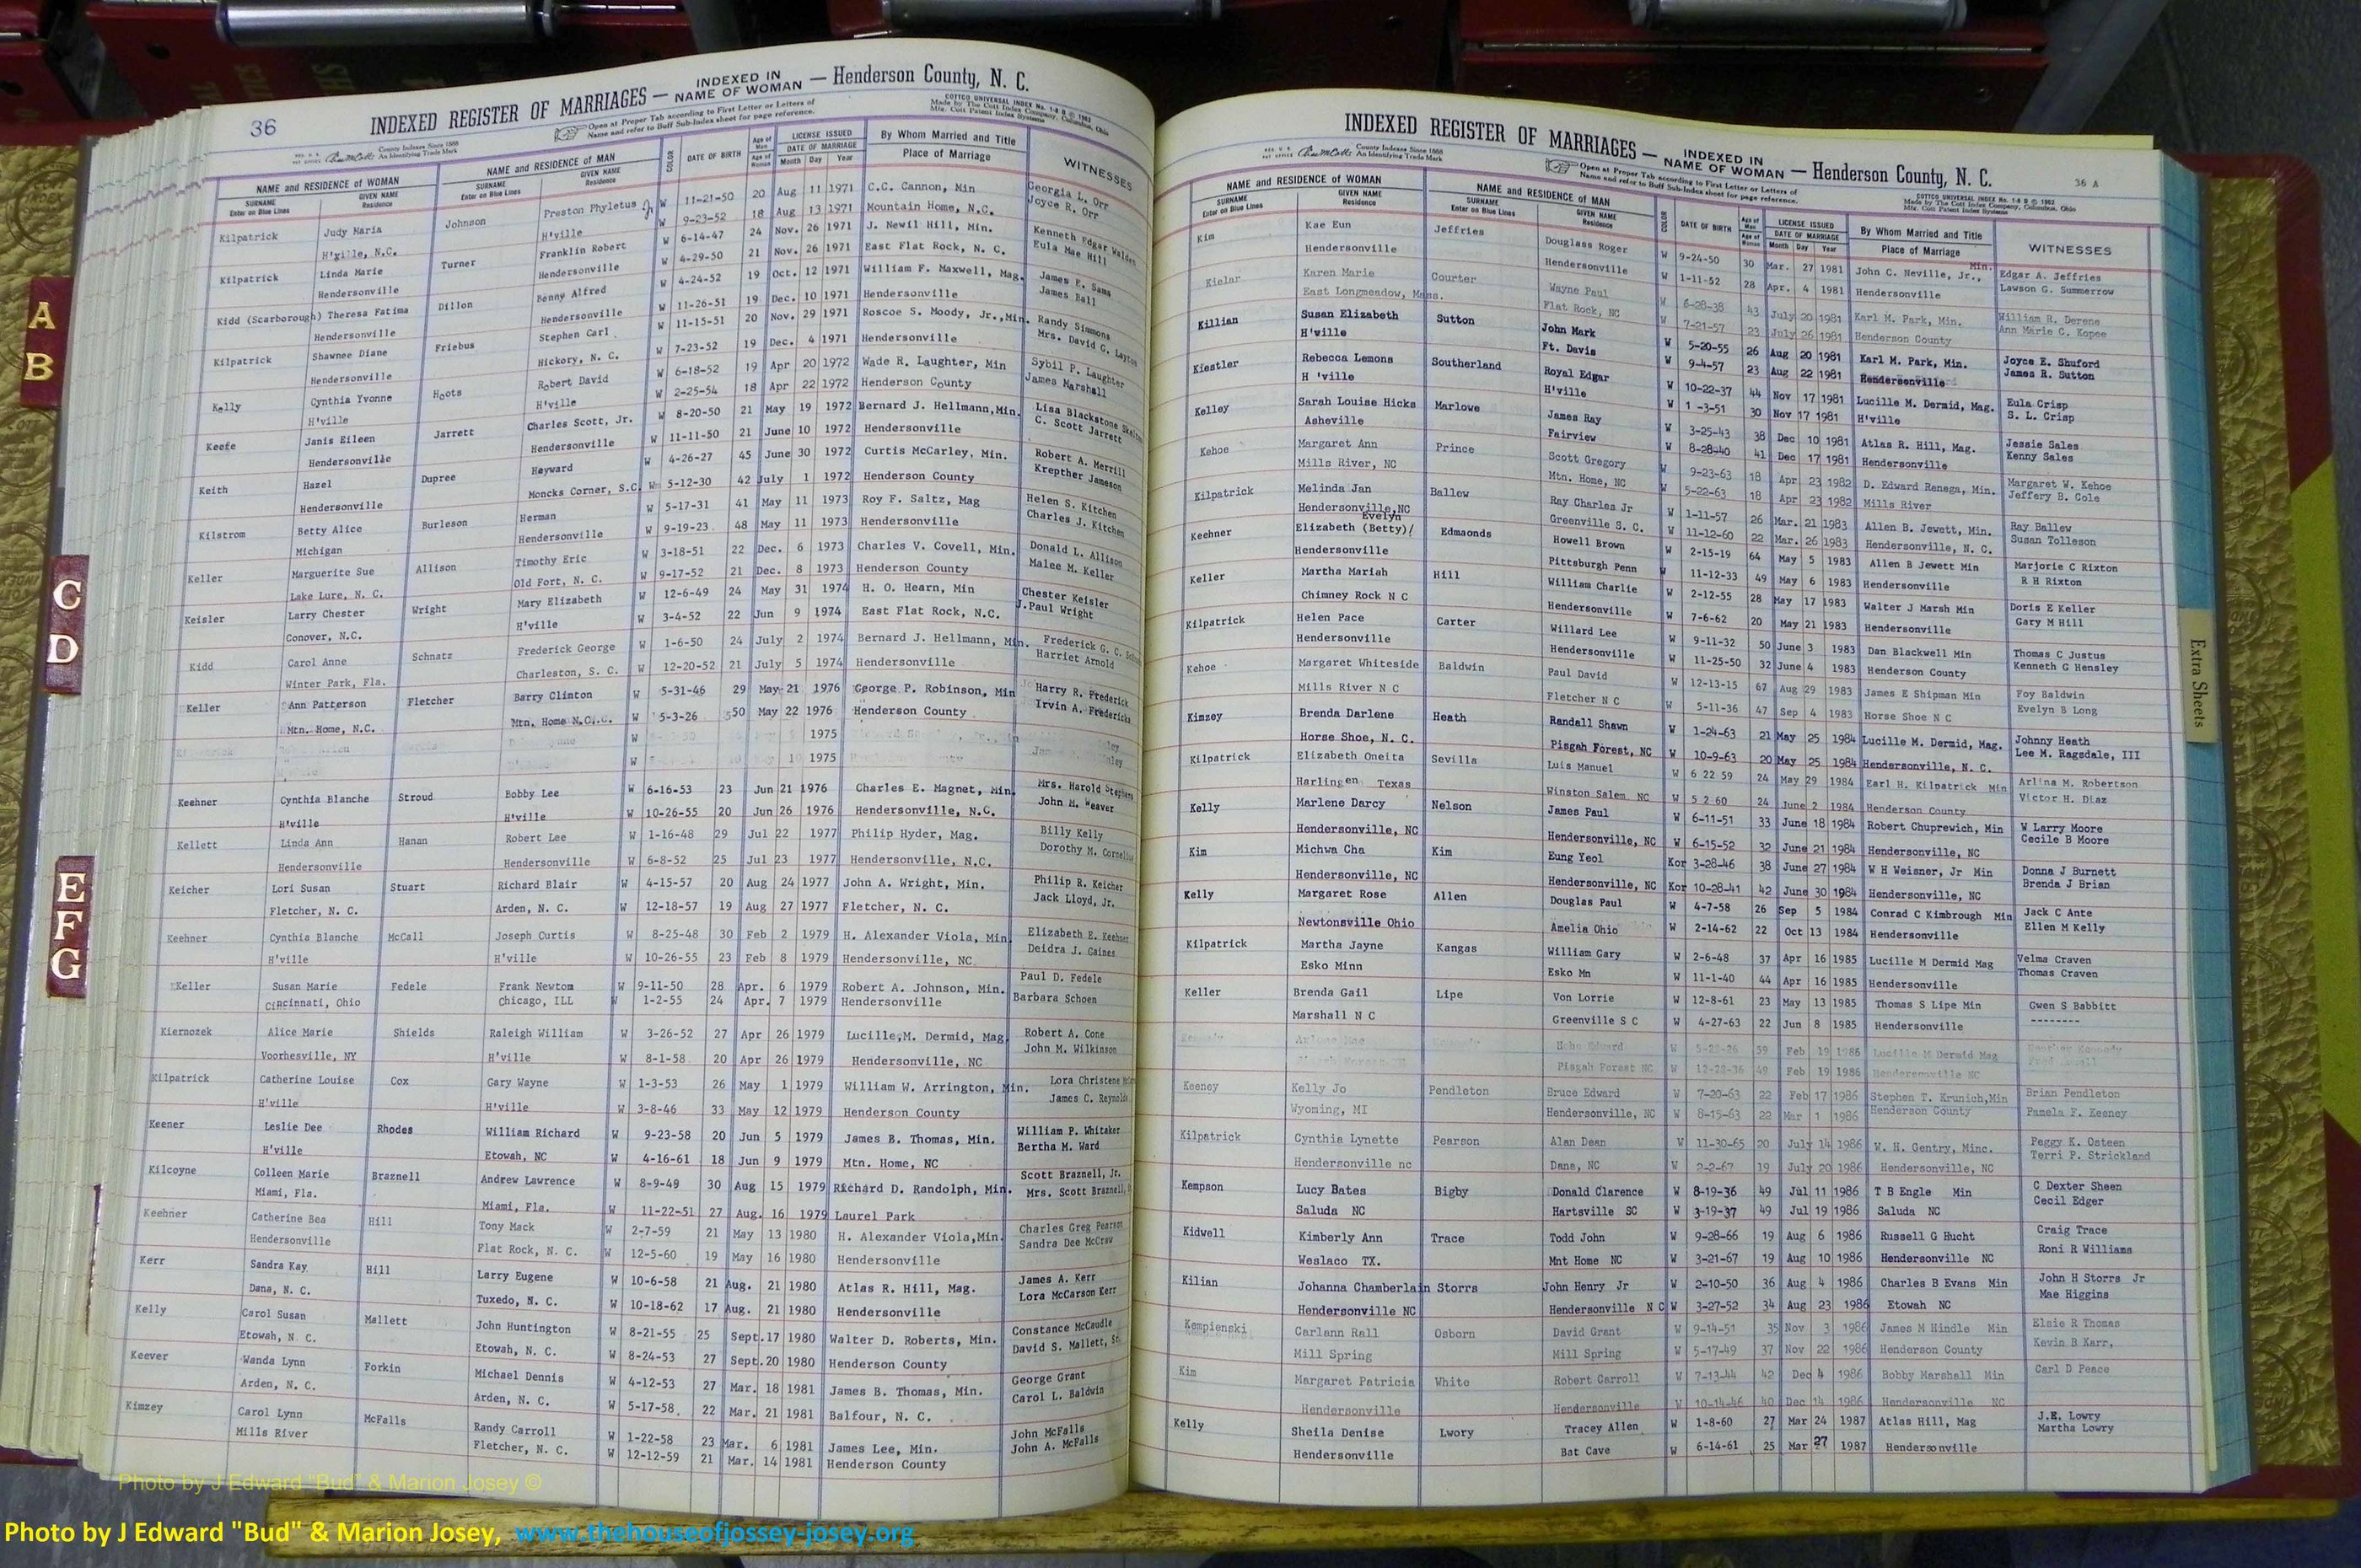 36
INDEXED REGISTER OF MARRIAGES — INDEXED IN NAME OF WOMAN — Henderson County, N. C.
Open at Proper Tab according to First Letter or Letters of
Name and refer to Buff Sub-Index sheet for page reference.
COTTCO UNIVERSAL INDEX No. 1-8 B © 1962
Made by The Cott Index Company, Columbus, Ohio
Mfg. Cott Patent Index Systems
County Indexes Since 1888
An Identifying Trade Mark
NAME and RESIDENCE of WOMAN NAME and RESIDENCE of MAN COLOR DATE OF BIRTH Age of Man LICENSE ISSUED By Whom Married and Title WITNESSES
SURNAME Enter on Blue Lines GIVEN NAME Residence SURNAME Enter on Blue Lines GIVEN NAME Residence Age of Woman DATE OF MARRIAGE Month Day Year Place of Marriage
Kilpatrick Judy Maria Johnson Preston Phyletus W 11-21-50 20 Aug 11 1971 C.C. Cannon, Min Georgia L. Orr
H'ville, N.C. H'ville W 9-23-52 18 Aug 13 1971 Mountain Home, N.C. Joyce R. Orr
Kilpatrick Linda Marie Turner Franklin Robert W 6-14-47 24 Nov. 26 1971 J. Newil Hill, Min. Kenneth Edgar Walden
Hendersonville Hendersonville W 4-29-50 21 Nov. 26 1971 East Flat Rock, N. C. Eula Mae Hill
Kidd (Scarborough) Theresa Fatima Dillon Benny Alfred W 4-24-52 19 Oct. 12 1971 William F. Maxwell, Mag. James E. Sams
Hendersonville Hendersonville W 11-26-51 19 Dec. 10 1971 Hendersonville James Ball
Kilpatrick Shawnee Diane Friebus Stephen Carl W 11-15-51 20 Nov. 29 1971 Roscoe S. Moody, Jr., Min. Randy Simmons
Hendersonville Hickory, N. C. W 7-23-52 19 Dec. 4 1971 Hendersonville Mrs. David C. Layton
Kelly Cynthia Yvonne Hoots Robert David W 6-18-52 19 Apr 20 1972 Wade R. Laughter, Min Sybil P. Laughter
H'ville H'ville W 2-25-54 18 Apr 22 1972 Henderson County James Marshall
Keefe Janis Eileen Jarrett Charles Scott, Jr. W 8-20-50 21 May 19 1972 Bernard J. Hellmann, Min. Lisa Blackstone
Hendersonville Hendersonville W 11-11-50 21 June 10 1972 Hendersonville C. Scott Jarrett
Keith Hazel Dupree Hayward W 4-26-27 45 June 30 1972 Curtis McCarley, Min. Robert A. Merrill
Hendersonville Moncks Corner, S.C. W 5-12-30 42 July 1 1972 Henderson County Krepther Jameson
Kilstrom Betty Alice Burleson Herman W 5-17-31 41 May 11 1973 Roy F. Saltz, Mag Helen S. Kitchen
Michigan Hendersonville W 9-19-23 48 May 11 1973 Hendersonville Charles J. Kitchen
Keller Marguerite Sue Allison Timothy Eric W 3-18-51 22 Dec. 6 1973 Charles V. Covell, Min. Donald L. Allison
Lake Lure, N. C. Old Fort, N. C. W 9-17-52 21 Dec. 8 1973 Henderson County Malee M. Keller
Keisler Larry Chester Wright Mary Elizabeth W 12-6-49 24 May 31 1974 H. O. Hearn, Min Chester Keisler
Conover, N.C. H'ville W 3-4-52 22 Jun 9 1974 East Flat Rock, N.C. J.Paul Wright
Kidd Carol Anne Schnatz Frederick George W 1-6-50 24 July 2 1974 Bernard J. Hellmann, Min. Frederick G. C.
Winter Park, Fla. Charleston, S. C. W 12-20-52 21 July 5 1974 Hendersonville Harriet Arnold
Keller Ann Patterson Fletcher Barry Clinton W 5-31-46 29 May 21 1976 George P. Robinson, Min Harry R. Frederick
Mtn. Home, N.C. Mtn. Home N.C. W 5-3-26 50 May 22 1976 Henderson County Irvin A. Fredericks
W 1975
W 1975
Keehner Cynthia Blanche Stroud Bobby Lee W 6-16-53 23 Jun 21 1976 Charles E. Magnet, Min. Mrs. Harold Stephens
H'ville H'ville W 10-26-55 20 Jun 26 1976 Hendersonville, N.C. John M. Weaver
Kellett Linda Ann Hanan Robert Lee W 1-16-48 29 Jul 22 1977 Philip Hyder, Mag. Billy Kelly
Hendersonville Hendersonville W 6-8-52 25 Jul 23 1977 Hendersonville, N.C. Dorothy M. Cornelius
Keicher Lori Susan Stuart Richard Blair W 4-15-57 20 Aug 24 1977 John A. Wright, Min. Philip R. Keicher
Fletcher, N. C. Arden, N. C. W 12-18-57 19 Aug 27 1977 Fletcher, N. C. Jack Lloyd, Jr.
Keehner Cynthia Blanche McCall Joseph Curtis W 8-25-48 30 Feb 2 1979 H. Alexander Viola, Min. Elizabeth E. Keehner
H'ville H'ville W 10-26-55 23 Feb 8 1979 Hendersonville, NC Deidra J. Gaines
Keller Susan Marie Fedele Frank Newtom W 9-11-50 28 Apr. 6 1979 Robert A. Johnson, Min. Paul D. Fedele
Cincinnati, Ohio Chicago, ILL W 1-2-55 24 Apr. 7 1979 Hendersonville Barbara Schoen
Kiernozek Alice Marie Shields Raleigh William W 3-26-52 27 Apr 26 1979 Lucille,M. Dermid, Mag. Robert A. Cone
Voorhesville, NY H'ville W 8-1-58 20 Apr 26 1979 Hendersonville, NC John M. Wilkinson
Kilpatrick Catherine Louise Cox Gary Wayne W 1-3-53 26 May 1 1979 William W. Arrington, Min. Lora Christene
H'ville H'ville W 3-8-46 33 May 12 1979 Henderson County James C. Reynolds
Keener Leslie Dee Rhodes William Richard W 9-23-58 20 Jun 5 1979 James B. Thomas, Min. William P. Whitaker
H'ville Etowah, NC W 4-16-61 18 Jun 9 1979 Mtn. Home, NC Bertha M. Ward
Kilcoyne Colleen Marie Braznell Andrew Lawrence W 8-9-49 30 Aug 15 1979 Richard D. Randolph, Min. Scott Braznell, Jr.
Miami, Fla. Miami, Fla. W 11-22-51 27 Aug. 16 1979 Laurel Park Mrs. Scott Braznell,
Keehner Catherine Bea Hill Tony Mack W 2-7-59 21 May 13 1980 H. Alexander Viola,Min. Charles Greg Pearson
Hendersonville Flat Rock, N. C. W 12-5-60 19 May 16 1980 Hendersonville Sandra Dee McCraw
Kerr Sandra Kay Hill Larry Eugene W 10-6-58 21 Aug. 21 1980 Atlas R. Hill, Mag. James A. Kerr
Dana, N. C. Tuxedo, N. C. W 10-18-62 17 Aug. 21 1980 Hendersonville Lora McCarson Kerr
Kelly Carol Susan Mallett John Huntington W 8-21-55 25 Sept.17 1980 Walter D. Roberts, Min. Constance McCaudle
Etowah, N. C. Etowah, N. C. W 8-24-53 27 Sept.20 1980 Henderson County David S. Mallett, Sr.
Keever Wanda Lynn Forkin Michael Dennis W 4-12-53 27 Mar. 18 1981 James B. Thomas, Min. George Grant
Arden, N. C. Arden, N. C. W 5-17-58 22 Mar. 21 1981 Balfour, N. C. Carol L. Baldwin
Kimzey Carol Lynn McFalls Randy Carroll W 1-22-58 23 Mar. 6 1981 James Lee, Min. John McFalls
Mills River Fletcher, N. C. W 12-12-59 21 Mar. 14 1981 Henderson County John A. McFalls
INDEXED REGISTER OF MARRIAGES — INDEXED IN NAME OF WOMAN — Henderson County, N. C.
36 A
County Indexes Since 1888
An Identifying Trade Mark
Open at Proper Tab according to First Letter or Letters of
Name and refer to Buff Sub-Index sheet for page reference.
COTTCO UNIVERSAL INDEX No. 1-8 B © 1962
Made by The Cott Index Company, Columbus, Ohio
Mfg. Cott Patent Index Systems
NAME and RESIDENCE of WOMAN NAME and RESIDENCE of MAN COLOR DATE OF BIRTH Age of Man LICENSE ISSUED By Whom Married and Title WITNESSES
SURNAME Enter on Blue Lines GIVEN NAME Residence SURNAME Enter on Blue Lines GIVEN NAME Residence Age of Woman DATE OF MARRIAGE Month Day Year Place of Marriage
Kim Kae Eun Jeffries Douglass Roger W 9-24-50 30 Mar. 27 1981 John C. Neville, Jr., Min. Edgar A. Jeffries
Hendersonville Hendersonville W 1-11-52 28 Apr. 4 1981 Hendersonville Lawson G. Summerrow
Kielar Karen Marie Courter Wayne Paul W 6-28-38 43 July 20 1981 Karl M. Park, Min. William R. Derene
East Longmeadow, Mass. Flat Rock, NC W 7-21-57 23 July 26 1981 Henderson County Ann Marie C. Kopee
Killian Susan Elizabeth Sutton John Mark W 5-20-55 26 Aug 20 1981 Karl M. Park, Min. Joyce E. Shuford
H'ville Ft. Davis W 9-4-57 23 Aug 22 1981 Hendersonville James R. Sutton
Kiestler Rebecca Lemons Southerland Royal Edgar W 10-22-37 44 Nov 17 1981 Lucille M. Dermid, Mag. Eula Crisp
H 'ville H'ville W 1 -3-51 30 Nov 17 1981 H'ville S. L. Crisp
Kelley Sarah Louise Hicks Marlowe James Ray W 3-25-43 38 Dec 10 1981 Atlas R. Hill, Mag. Jessie Sales
Asheville Fairview W 8-28-40 41 Dec 17 1981 Hendersonville Kenny Sales
Kehoe Margaret Ann Prince Scott Gregory W 9-23-63 18 Apr 23 1982 D. Edward Renega, Min. Margaret W. Kehoe
Mills River, NC Mtn. Home, NC W 5-22-63 18 Apr 23 1982 Mills River Jeffery B. Cole
Kilpatrick Melinda Jan Ballew Ray Charles Jr W 1-11-57 26 Mar. 21 1983 Allen B. Jewett, Min. Ray Ballew
Hendersonville,NC Greenville S. C. W 11-12-60 22 Mar. 26 1983 Hendersonville, N. C. Susan Tolleson
Keehner Elizabeth (Betty)/ Evelyn Edmaonds Howell Brown W 2-15-19 64 May 5 1983 Allen B Jewett Min Marjorie C Rixton
Hendersonville Pittsburgh Penn W 11-12-33 49 May 6 1983 Hendersonville R H Rixton
Keller Martha Mariah Hill William Charlie W 2-12-55 28 May 17 1983 Walter J Marsh Min Doris E Keller
Chimney Rock N C Hendersonville W 7-6-62 20 May 21 1983 Hendersonville Gary M Hill
Kilpatrick Helen Pace Carter Willard Lee W 9-11-32 50 June 3 1983 Dan Blackwell Min Thomas C Justus
Hendersonville Hendersonville W 11-25-50 32 June 4 1983 Henderson County Kenneth G Hensley
Kehoe Margaret Whiteside Baldwin Paul David W 12-13-15 67 Aug 29 1983 James E Shipman Min Foy Baldwin
Mills River N C Fletcher N C W 5-11-36 47 Sep 4 1983 Horse Shoe N C Evelyn B Long
Kimzey Brenda Darlene Heath Randall Shawn W 1-24-63 21 May 25 1984 Lucille M. Dermid, Mag. Johnny Heath
Horse Shoe, N. C. Pisgah Forest, NC W 10-9-63 20 May 25 1984 Hendersonville, N. C. Lee M. Ragsdale, III
Kilpatrick Elizabeth Oneita Sevilla Luis Manuel W 6 22 59 24 May 29 1984 Earl H. Kilpatrick Min Arlina M. Robertson
Harlingen Texas Winston Salem NC W 5 2 60 24 June 2 1984 Henderson County Victor H. Diaz
Kelly Marlene Darcy Nelson James Paul W 6-11-51 33 June 18 1984 Robert Chuprewich, Min W Larry Moore
Hendersonville, NC Hendersonville, NC W 6-15-52 32 June 21 1984 Hendersonville, NC Cecile B Moore
Kim Michwa Cha Kim Eung Yeol Kor 3-28-46 38 June 27 1984 W H Weisner, Jr Min Donna J Burnett
Hendersonville, NC Hendersonville, NC Kor 10-28-41 42 June 30 1984 Hendersonville, NC Brenda J Brian
Kelly Margaret Rose Allen Douglas Paul W 4-7-58 26 Sep 5 1984 Conrad C Kimbrough Min Jack C Ante
Newtonsville Ohio Amelia Ohio W 2-14-62 22 Oct 13 1984 Hendersonville Ellen M Kelly
Kilpatrick Martha Jayne Kangas William Gary W 2-6-48 37 Apr 16 1985 Lucille M Dermid Mag Velma Craven
Esko Minn Esko Mn W 11-1-40 44 Apr 16 1985 Hendersonville Thomas Craven
Keller Brenda Gail Lipe Von Lorrie W 12-8-61 23 May 13 1985 Thomas S Lipe Min Gwen S Babbitt
Marshall N C Greenville S C W 4-27-63 22 Jun 8 1985 Hendersonville --------
Kennedy Hobe Edward W 5-23-26 59 Feb 19 1986 Lucille M Dermid Mag
Pisgah Forest NC W 12-28-36 49 Feb 19 1986 Hendersonville NC
Keeney Kelly Jo Pendleton Bruce Edward W 7-20-63 22 Feb 17 1986 Stephen T. Krunich,Min Brian Pendleton
Wyoming, MI Hendersonville, NC W 8-15-63 22 Mar 1 1986 Henderson County Pamela F. Keeney
Kilpatrick Cynthia Lynette Pearson Alan Dean W 11-30-65 20 July 14 1986 W. H. Gentry, Minc. Peggy K. Osteen
Hendersonville nc Dana, NC W 2-2-67 19 July 20 1986 Hendersonville, NC Terri P. Strickland
Kempson Lucy Bates Bigby Donald Clarence W 8-19-36 49 Jul 11 1986 T B Engle Min C Dexter Sheen
Saluda NC Hartsville SC W 3-19-37 49 Jul 19 1986 Saluda NC Cecil Edger
Kidwell Kimberly Ann Trace Todd John W 9-28-66 19 Aug 6 1986 Russell G Hucht Craig Trace
Weslaco TX. Mnt Home NC W 3-21-67 19 Aug 10 1986 Hendersonville NC Roni R Williams
Kilian Johanna Chamberlain Storrs John Henry Jr W 2-10-50 36 Aug 4 1986 Charles B Evans Min John H Storrs Jr
Hendersonville NC Hendersonville N C W 3-27-52 34 Aug 23 1986 Etowah NC Mae Higgins
Kempienski Carlann Rall Osborn David Grant W 9-14-51 35 Nov 3 1986 James M Hindle Min Elsie R Thomas
Mill Spring Mill Spring W 5-17-49 37 Nov 22 1986 Henderson County Kevin B Karr,
Kim Margaret Patricia White Robert Carroll W 7-13-44 42 Dec 4 1986 Bobby Marshall Min Carl D Peace
Hendersonville Hendersonville W 10-14-46 40 Dec 14 1986 Hendersonville NC
Kelly Sheila Denise Lwory Tracey Allen W 1-8-60 27 Mar 24 1987 Atlas Hill, Mag J.E. Lowry
Hendersonville Bat Cave W 6-14-61 25 Mar 27 1987 Hendersonville Martha Lowry
A
B
C
D
E
F
G
Extra Sheets
Photo by J Edward "Bud" & Marion Josey ©
Photo by J Edward "Bud" & Marion Josey, www.thehouseofjossey-josey.org